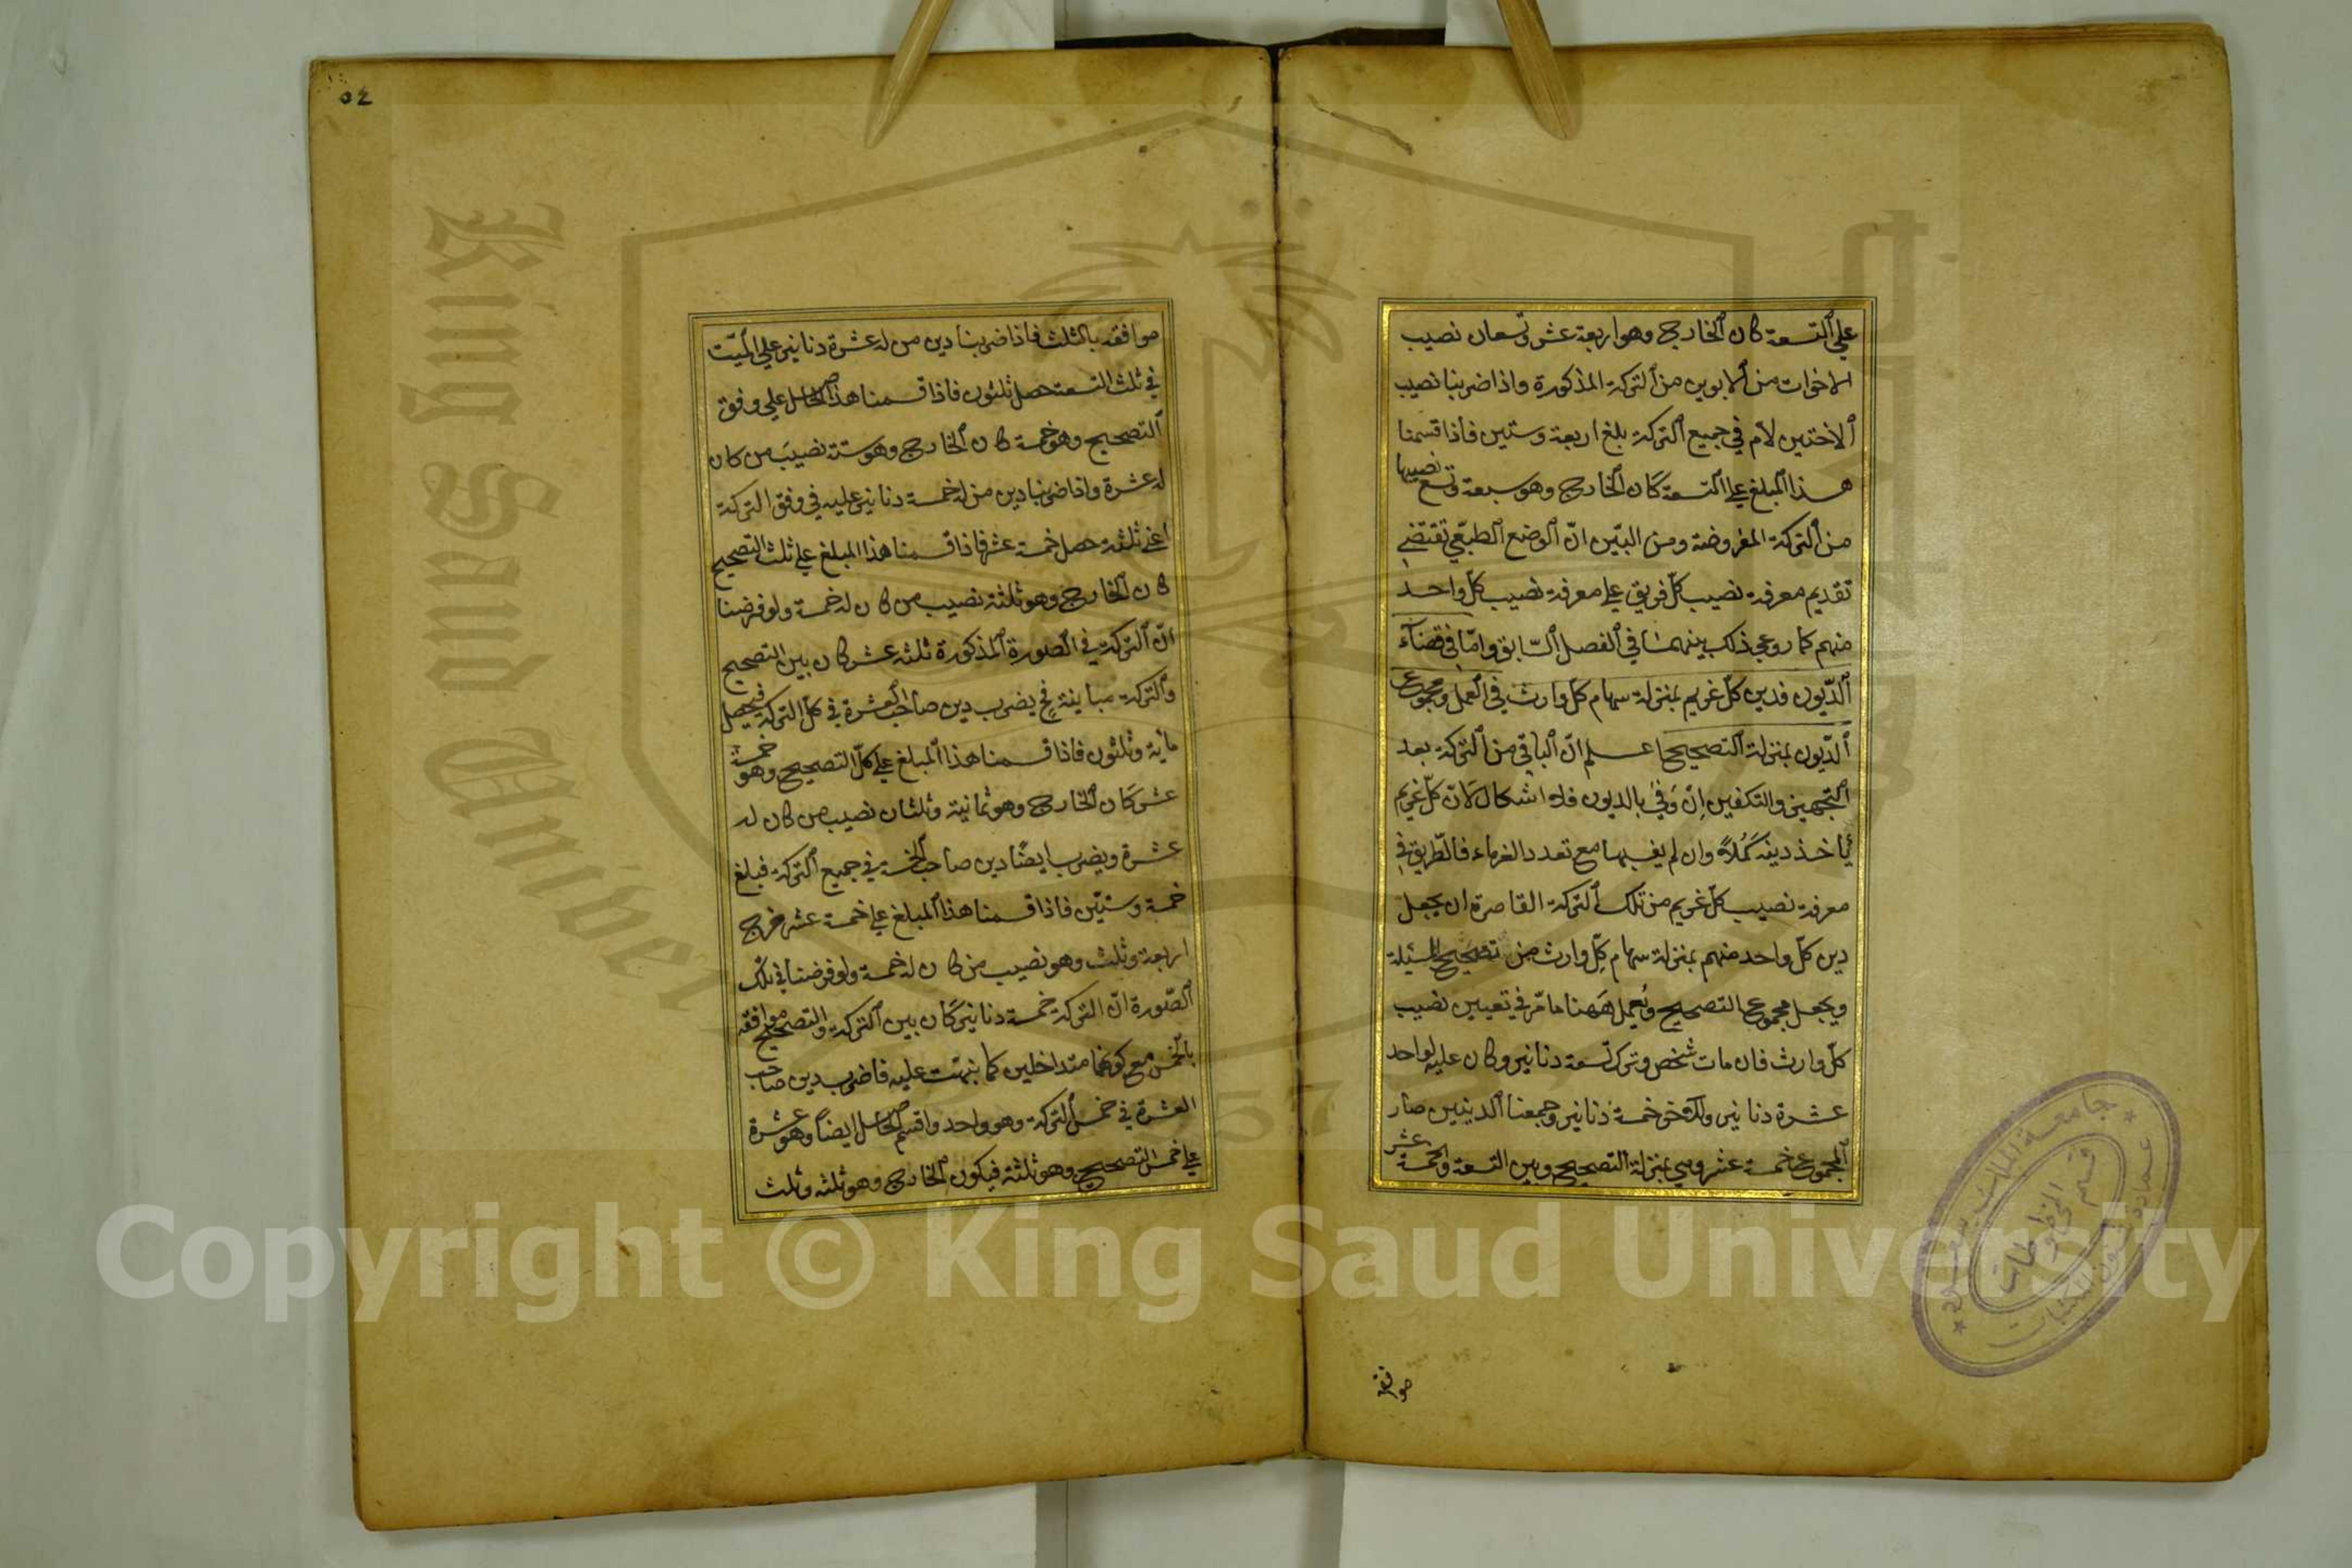 علي التسعة كان الخارج وهو اربعة عشر وتسعان نصيب
الاخوات من الابوين من التركة المذكورة واذا ضربنا نصيب
الاختين لام في جميع التركة بلغ اربعة وستين فاذا قسمنا
هذا المبلغ علي التسعة كان الخارج وهو سبعة وتسع نصيبها
من التركة المفروضة ومن البيّن انّ الوضع الطبيعي تقتضي
تقديم معرفة نصيب كلّ فريق علي معرفة نصيب كلّ واحد
منهم كما روعي ذلك بينهما في الفصل السّابق وامّا في قضآء
الدّيون فدين كلّ غريم بمنزلة سهام كلّ وارث في العمل ومجموع
الدّيون بمنزلة التصحيح اعلم انّ الباقي من التركة بعد
التجهيز والتكفين اِن وَفي بالديون فلا اشكال لانّ كلّ غريم
يأخذ دينه كَمُلاً وان لم يف بها مع تعدد الغرماء فالطّريق في
معرفة نصيب كلّ غريم من تلك التركة القاصرة ان يجعل
دين كلّ واحد منهم بمنزلة سهام كلّ وارث من تصحيح المسئلة
ويجعل مجموع التصحيح ويُعمل هَهنا ما مرّ في تعيين نصيب
كلّ وارث فان مات شخص وترك تسعة دنانير وكان عليه لواحد
عشرة دنانير ولآخر خمسة دنانير وجمعنا الدينين صار
المجموع خمسة عشر وهي بمنزلة التصحيح وبين التسعة والخمسة عشر
موافقة
موافقة بالثلث فاذا ضربنا دين من له عشرة دنانير علي الميّت
في ثلث التسعة حصل ثلثون فاذا قسمنا هذا الحاصل علي وفق
التصحيح وهو خمسة كان الخارج وهو ستة نصيبَ من كان
له عشرة واذا ضربنا دين من له خمسة دنانير عليه في وفق التركة
اعني ثلثة حصل خمسة عشر فاذا قسمنا هذا المبلغ علي ثلث التصحيح
كان الخارج وهو ثلثة نصيب من كان له خمسة ولو فرضنا
انّ التركة في الصّورة المذكورة ثلثة عشر كان بين التصحيح
والتركة مباينة فح يضرب دين صاحب العشرة في كلّ التركة فيحصل
مائة وثلثون فاذا قسمنا هذا المبلغ علي كلّ التصحيح وهو خمسة
عشر كان الخارج وهو ثمانية وثلثان نصيب من كان له
عشرة ويضرب ايضًا دين صاحب الخمسة في جميع التركة فبلغ
خمسة وستّين فاذا قسمنا هذا المبلغ علي خمسة عشر خرج
اربعة وثلث وهو نصيب من كان له خمسة ولو فرضنا في تلك
الصّورة انّ التركة خمسة دنانير كان بين التركة والتصحيح موافقة
بالخمس مع كونهما متداخلين كما نبهّت عليه فاضرب دين صاحب
العشرة في خمس التركة وهو واحد واقسم الحاصل ايضاً وهو عشرة
علي خمس التصحيح وهو ثلثة فيكون الخارج وهو ثلثه وثلث
جامعة الملك سعود
عمادة شؤون المكتبات
قسم المخطوطات
King Saud University
Copyright © King Saud University
1957